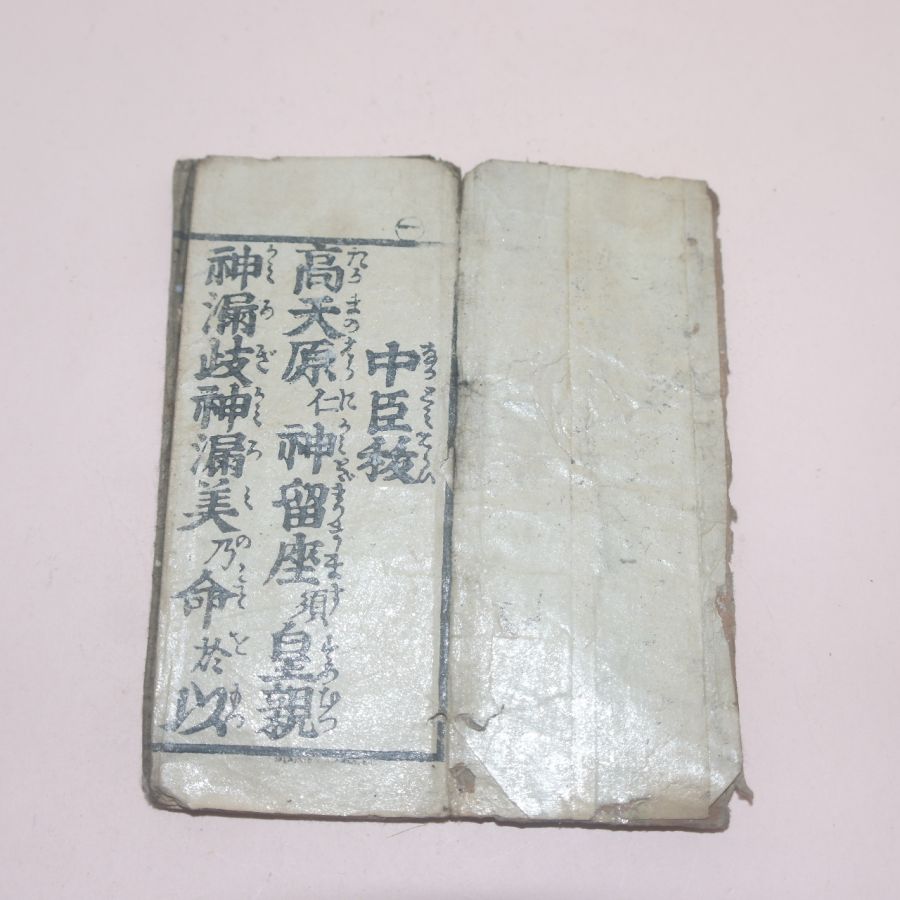 一
中臣祓
高天原仁神留座須皇親
神漏岐神漏美乃命於以